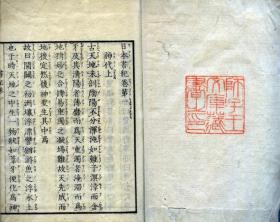 日本書紀卷第一
神代上
古天地未剖陰陽不分渾沌如雞子溟涬而含
牙及其清陽者薄靡而爲天重濁者淹滯而爲
地精妙之合摶易重濁之凝竭難故天先成而
地後定然後神聖生其中焉
故曰開闢之初洲壤浮漂譬猶游魚之浮水上
也于時天地之中生一物狀如葦牙便化爲神